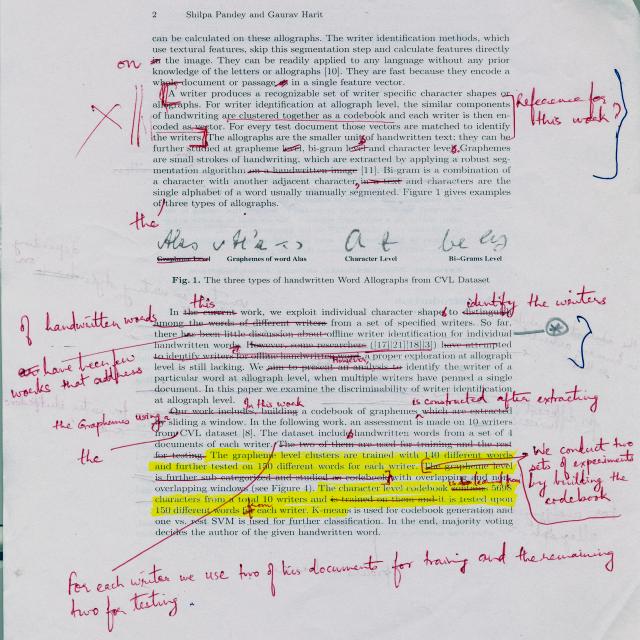 2 Shilpa Pandey and Gaurav Harit
can be calculated on these allographs. The writer identification methods, which
use textural features, skip this segmentation step and calculate features directly
the image. They can be readily applied to any language without any prior
on
knowledge of the letters or allographs [10]. They are fast because they encode a
whole document or passage in a single feature vector.
A writer produces a recognizable set of writer specific character shapes or
allographs. For writer identification at allograph level, the similar components
Reference for
this work?
of handwriting are clustered together as a codebook and each writer is then en-
coded as vector. For every test document those vectors are matched to identify
the writers. The allographs are the smaller units of handwritten text; they can be
further studied at grapheme level, bi-gram level and character level. Graphemes
are small strokes of handwriting, which are extracted by applying a robust seg-
mentation algorithm on a handwritten image [11]. Bi-gram is a combination of
a character with another adjacent character in a text and characters are the
single alphabet of a word usually manually segmented. Figure 1 gives examples
of three types of allographs.
the
Alas
a t
Grapheme Level Graphemes of word Alas Character Level Bi-Grams Level
Fig. 1. The three types of handwritten Word Allographs from CVL Dataset
this
identify the writers
In the current work, we exploit individual character shapes to distinguish
of handwritten words
among the words of different writers from a set of specified writers. So far,
there has been little discussion about offline writer identification for individual
handwritten words. However, some researchers ([17][21][18][3]) have attempted
to identify writers for offline handwritten a proper exploration at allograph
However,
have been few
works that address
level is still lacking. We aim to present an analysis to identify the writer of a
particular word at allograph level, when multiple writers have penned a single
document. In this paper we examine the discriminability of writer identification
at allograph level.
In this work
is constructed after extracting
Our work includes, building a codebook of graphemes, which are extracted
the Graphemes using a
by sliding a window. In the following work, an assessment is made on 10 writers
from CVL dataset [8]. The dataset includes handwritten words from a set of 4
the
documents of each writer. The two of them are used for training and the rest
for testing. The grapheme level clusters are trained with 140 different words
and further tested on 150 different words for each writer. The grapheme level
We conduct two
sets of experiments
by building the
codebook
is further sub categorized and studied as codebook with overlapping and non
overlapping windows (see Figure 4). The character level codebook contains 5698
characters from a total 10 writers and is trained on them and it is tested upon
150 different words for each writer. K-means is used for codebook generation and
from
one vs. rest SVM is used for further classification. In the end, majority voting
decides the author of the given handwritten word.
For each writer we use two of his documents for training and the remaining
two for testing.